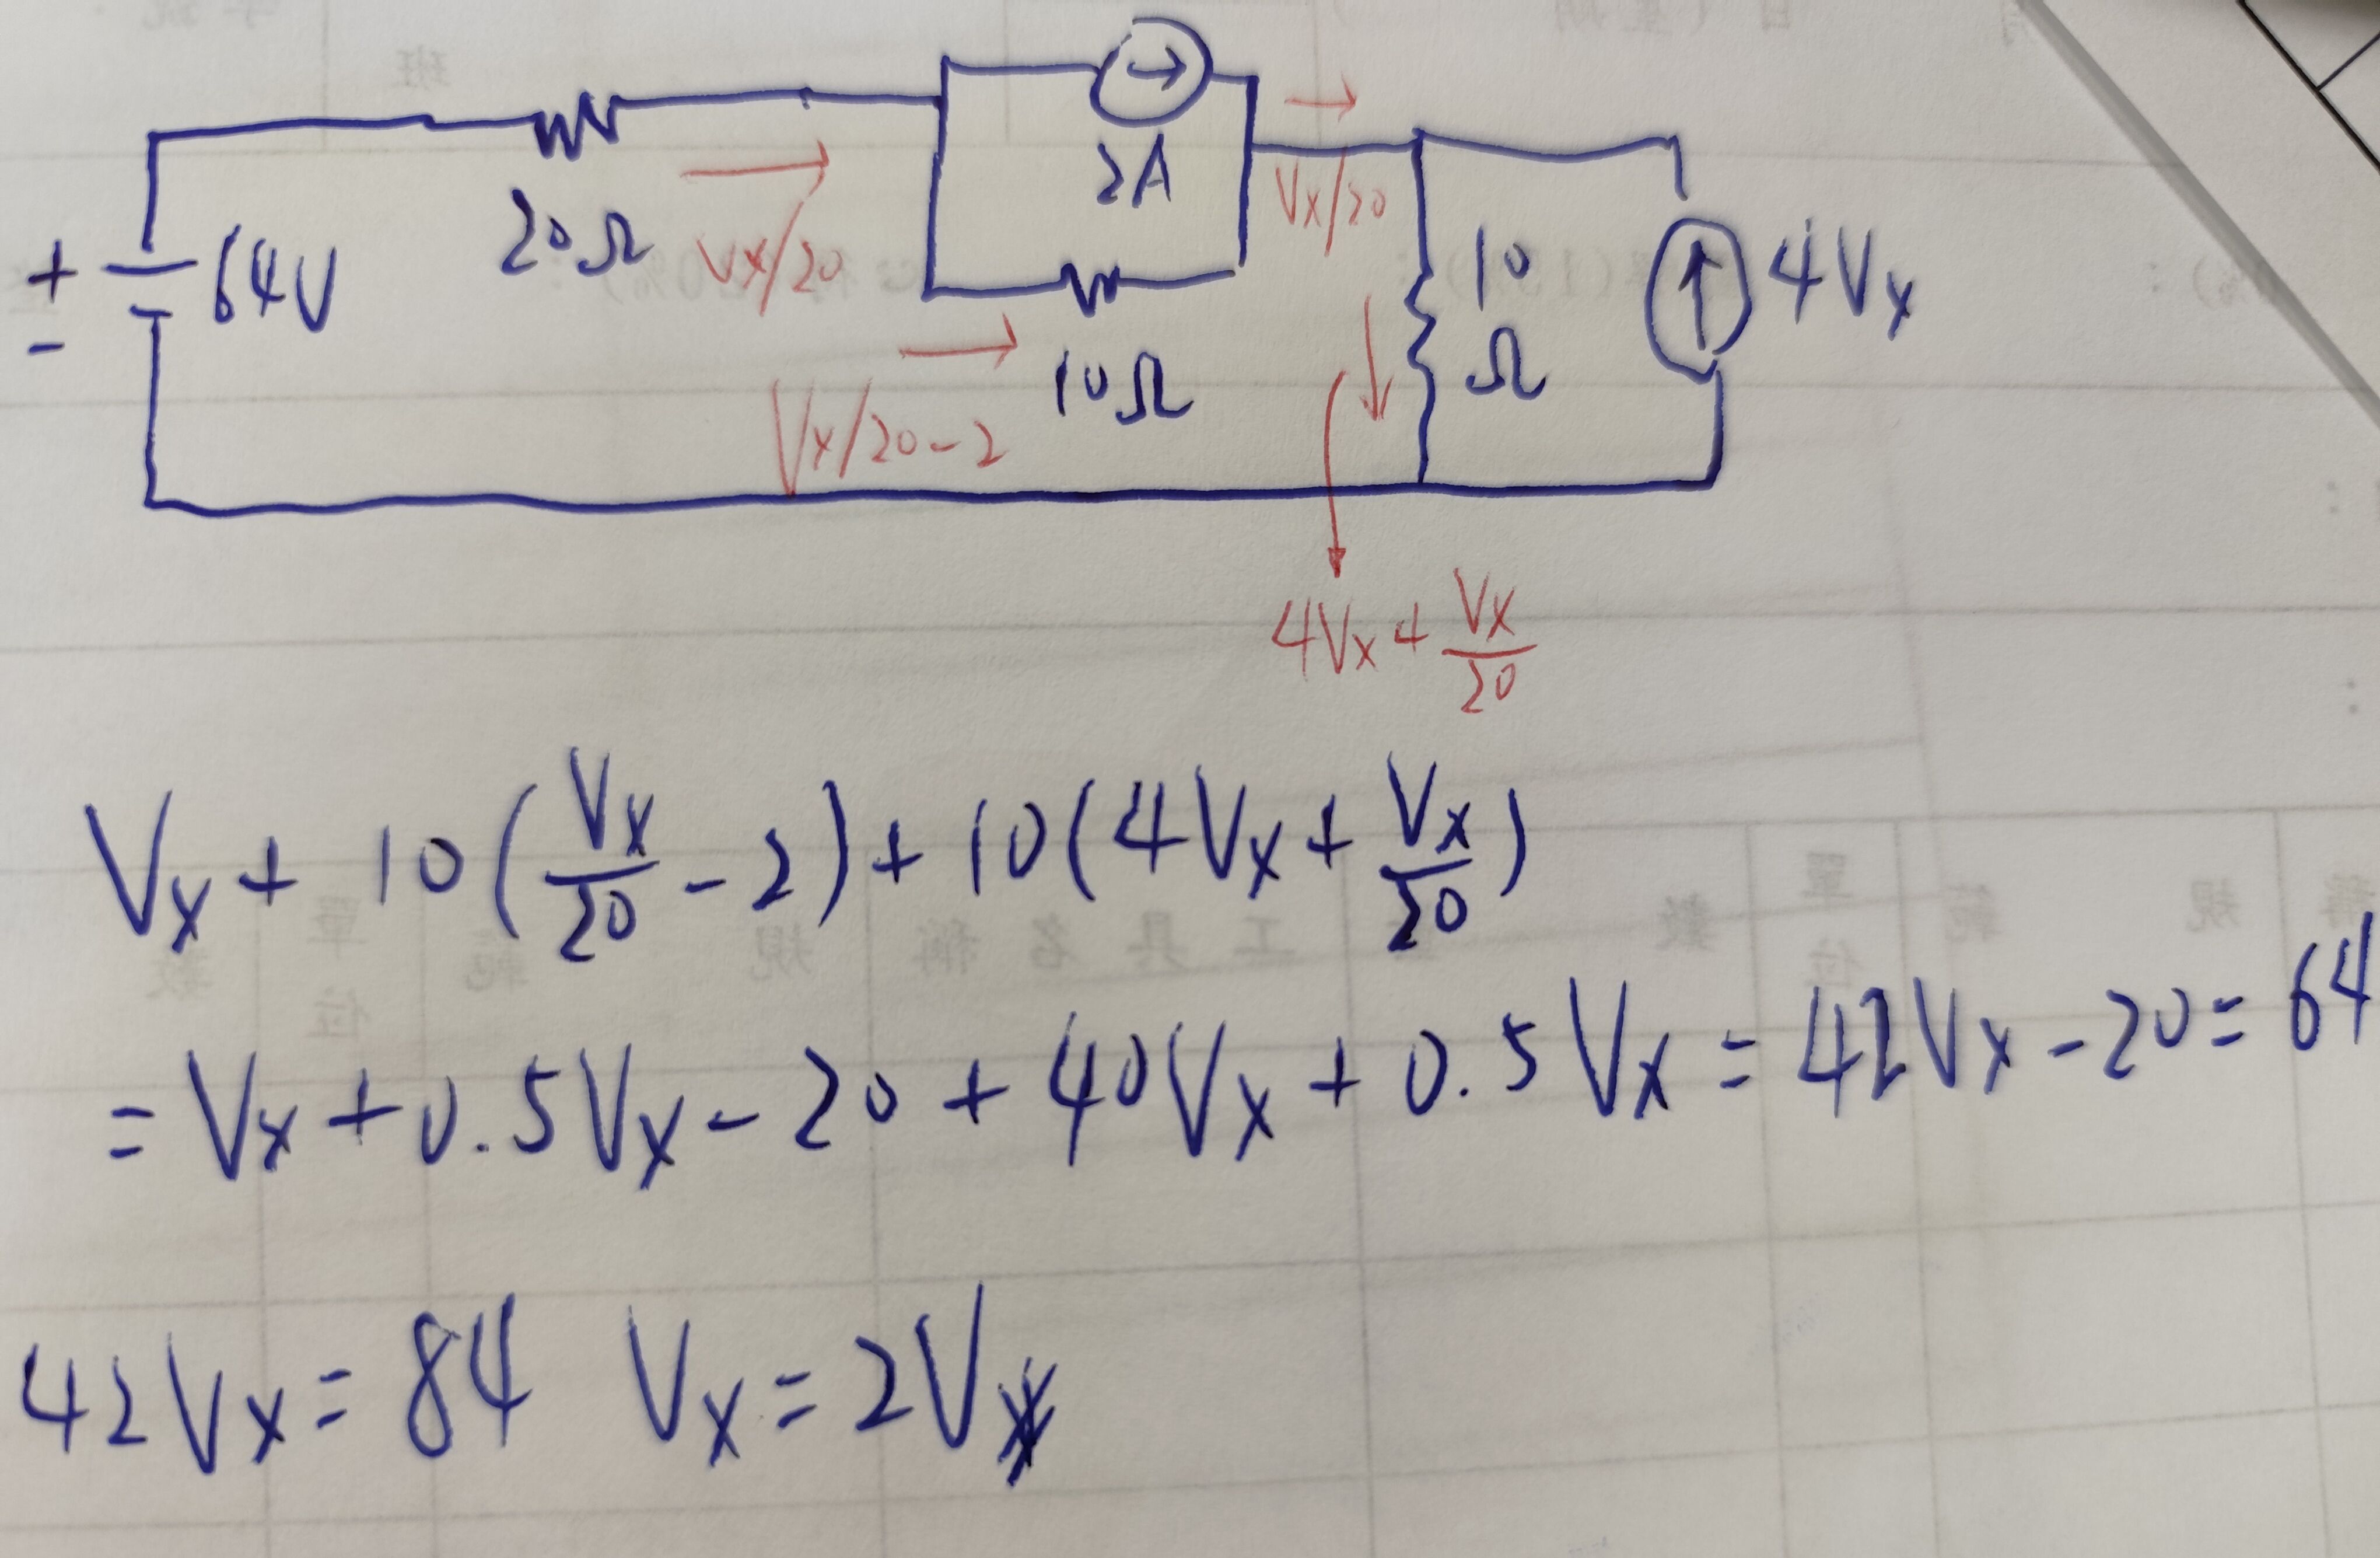 2A
20Ω
Vx/20
Vx/20
+
-
64V
10Ω
10
Ω
4Vx
Vx/20-2
4Vx+Vx/20
Vx + 10(Vx/20 - 2) + 10(4Vx + Vx/20)
= Vx + 0.5Vx - 20 + 40Vx + 0.5Vx = 42Vx - 20 = 64
42Vx = 84 Vx = 2V